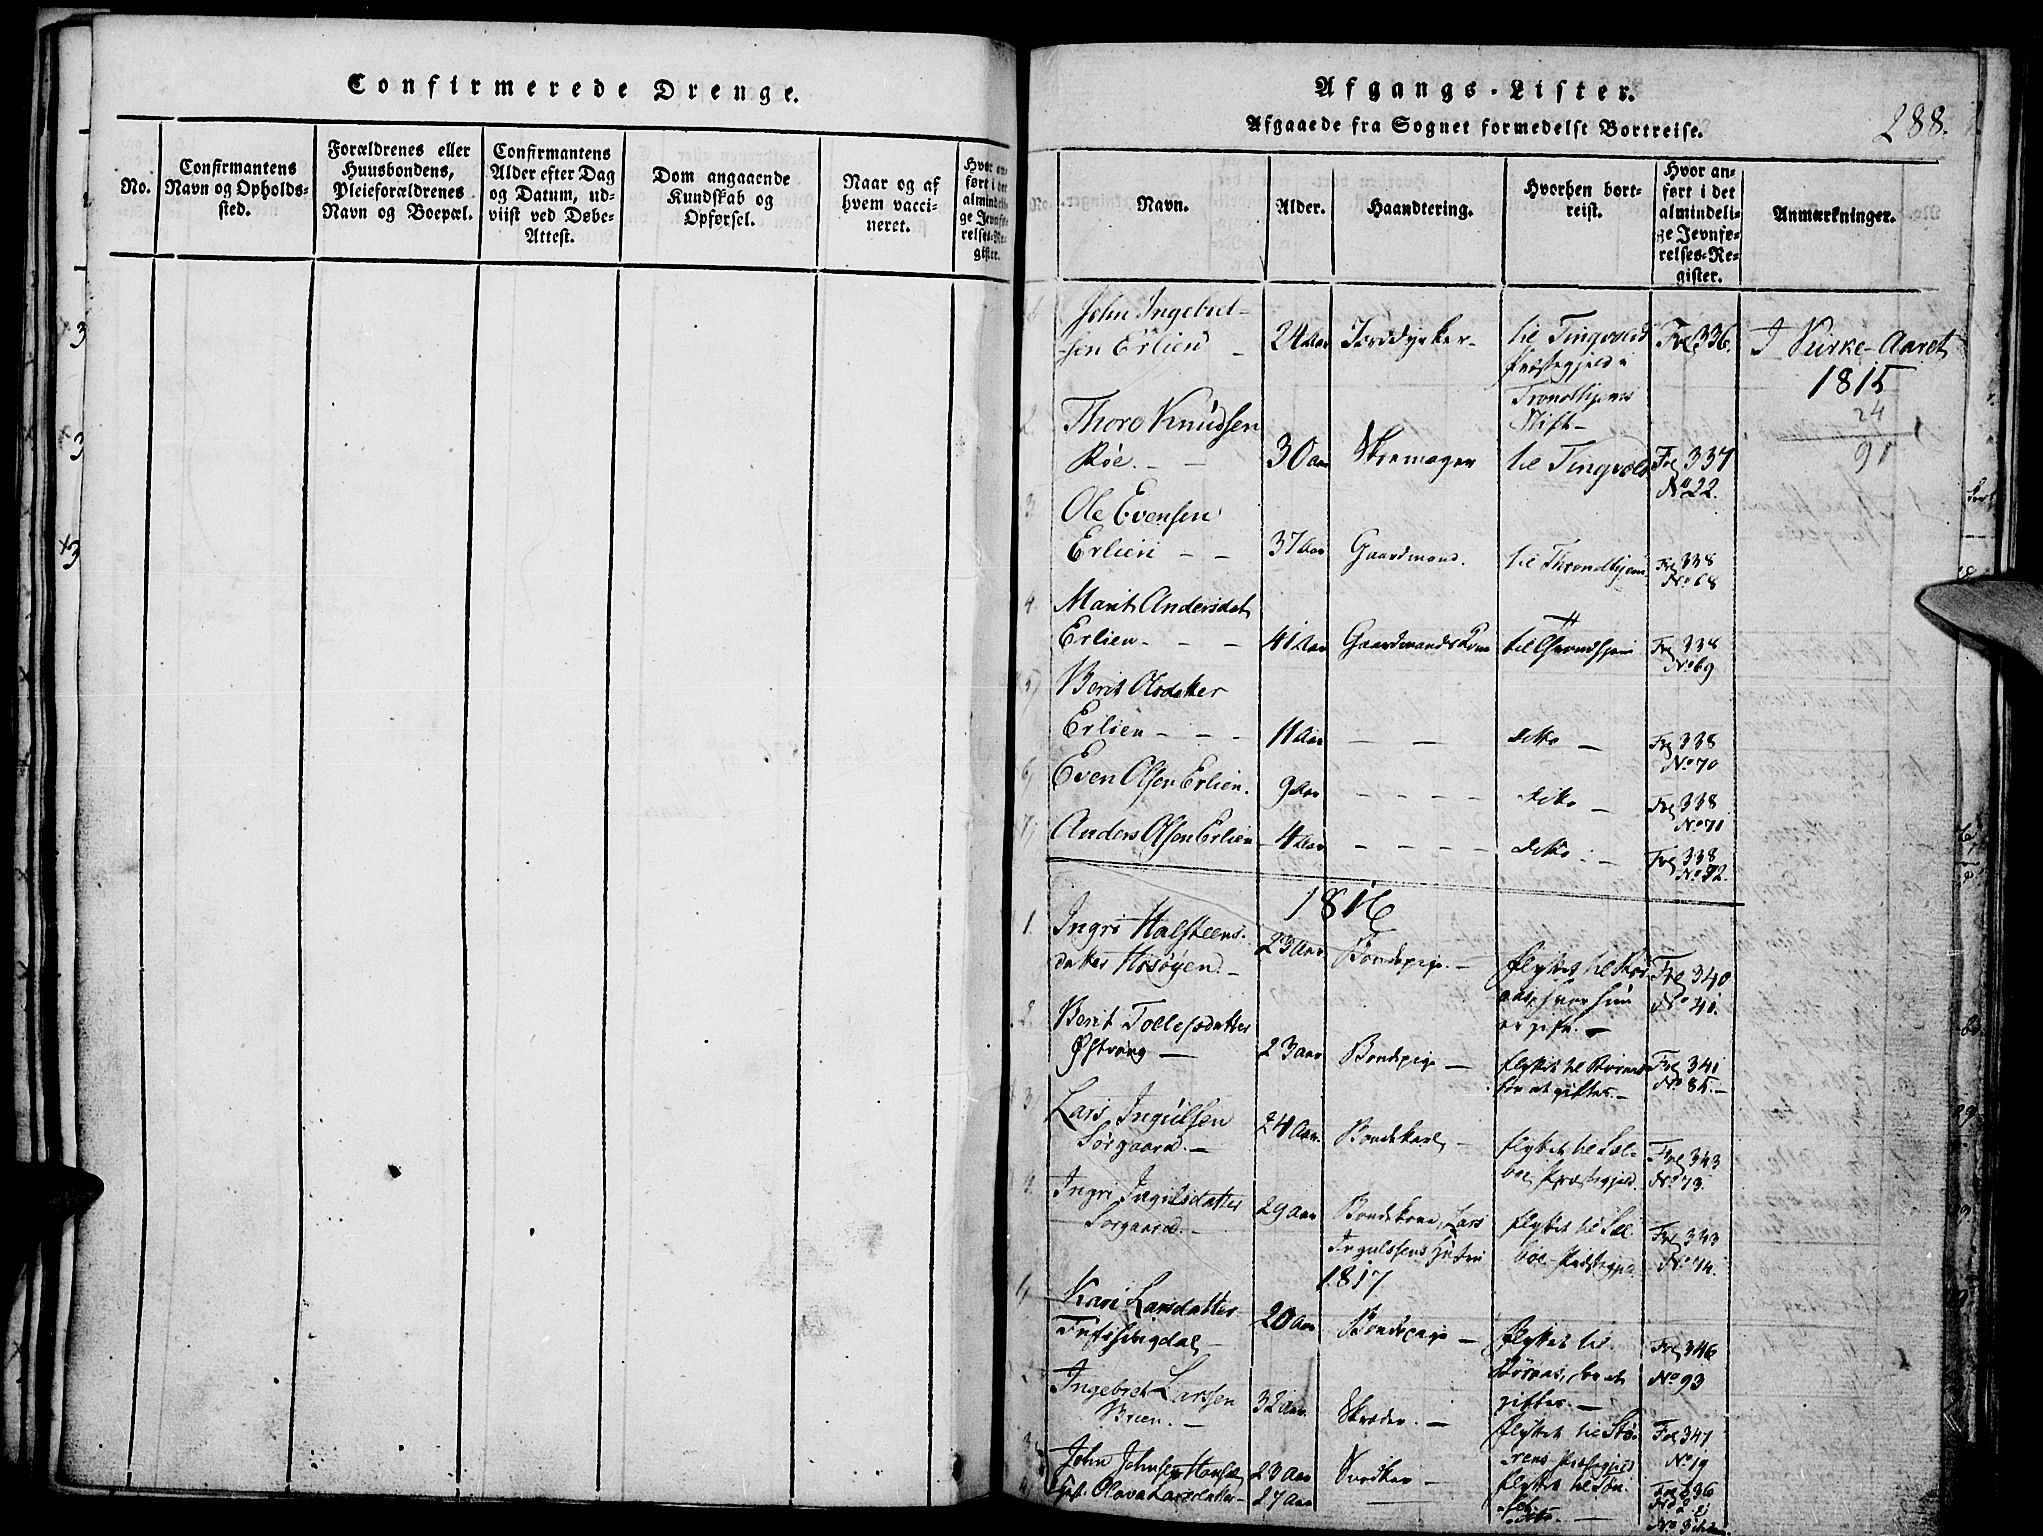 Confirmerede Drenge.
No.
Confirmantens
Navn og Opholds-
sted.
Forældrenes eller
Huusbondens,
Pleieforældrenes
Navn og Boepæl.
Confirmantens
Alder efter Dag
og Datum, ud-
viist ved Døbe-
Attest.
Dom angaaende
Kundskab og
Opførsel.
Naar og af
hvem vacci-
neret.
Hvor an-
ført i det
almindeli-
ge Jevnfø-
relses-Re-
gister.
Afgangs-Lister.
Afgaaede fra Sognet formedelst Bortreise.
288.
Navn.
Alder.
Haandtering.
Hvorhen bort-
reist.
Hvor an-
ført i det
almindeli-
ge Jevnfø-
relses-Re-
gister.
Anmærkninger.
John Ingebret-
sen Erlien
24 Aar
Jorddyrker
til Tingvold
Præstegjeld i
Trondhjems
Stift
Fol 336.
I Kirke-Aaret
1815
24
91
2.
Thore Knudsen
Röe.
30 Aar
Skomager
til Tingvold
Fol 337
No 22.
3
Ole Evensen
Erlien
37 Aar
Gaardmand.
til Throndhjem
Fol 338
No 68
4.
Marit Andersdat
Erlien
41 Aar
Gaardmandskone
til Throndhjem
Fol 338
No 69
5
Berit Olsdatter
Erlien
11 Aar
ditto
Fol 338
No 70
6
Even Olsen Erlien.
9 Aar
ditto
Fol 338
No 71
7
Anders Olsen Erlien
4 Aar
ditto
Fol 338
No 72.
1816
1.
Ingri Halsteens-
datter
23 Aar
Bondepige
flyttet til Rør-
aas, hvor hun
er gift.
Fol 340
No 41.
2.
Berit Tollefsdatter
Østvang
23 Aar
Bondepige
flyttet til
for at giftes.
Fol 341
No 85.
3
Lars Ingulsen
Sørgaard.
24 Aar.
Bondekarl
flyttet til Sel-
boe Præstegjeld.
Fol 343
No 73.
4.
Ingri Ingulsdatter
Sørgaard.
29 Aar
Bondekone, Lars
Ingulssens Hustru
flyttet til Sel-
boe Præstegjeld.
Fol 343
No 74.
1817
1
Kari Larsdatter
20 Aar
Bondepige
flyttet til
Størens, for at
giftes.
Fol 346
No 93
Ingebret Larssen
Brien.
32 Aar.
Skræder
flyttet til Stø-
rens Præstegjeld
Fol 347
No 19
3
John Johnsen
23 Aar
Snedker
flyttet til
Olava Larsdatter
27 Aar
ditto